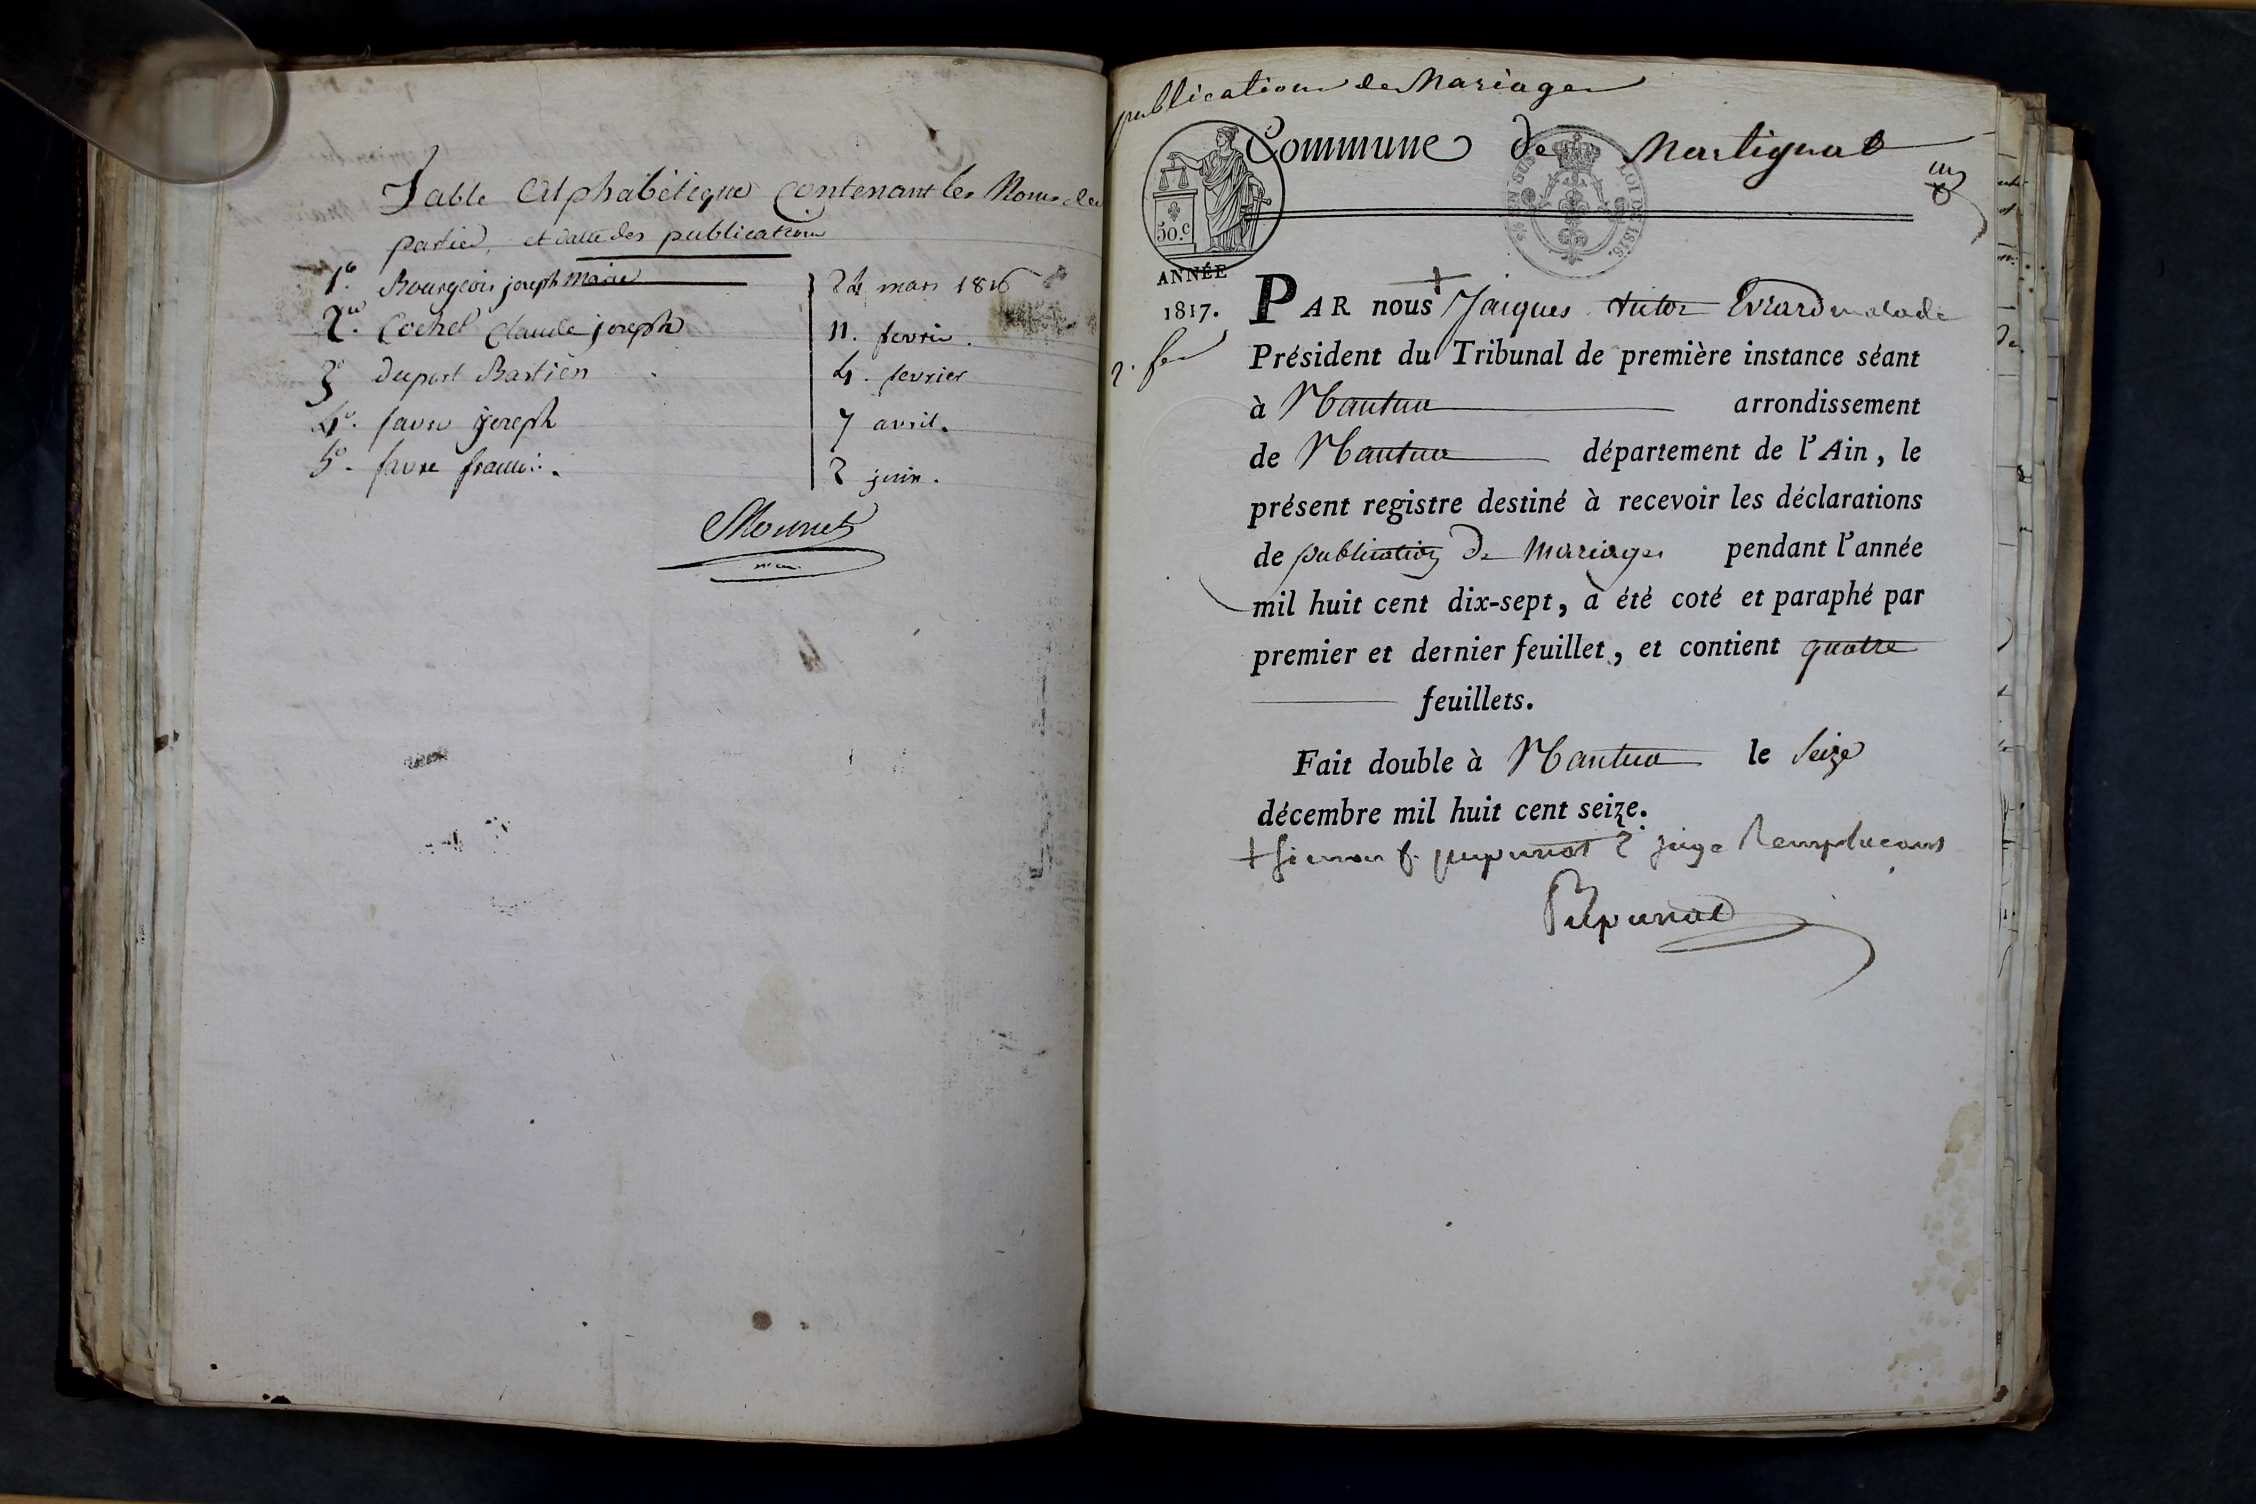 Table Alphabétique Contenant les Noms des
parties, et datte des publications
1º. Bourgeois joseph Marie 24 mars 1816
2º. Cochet Claude joseph 11. fevrier.
3º duport Bastien 4. fevrier
4º. favre joseph 7 avril.
5º. favre francois. 2 juin.
publications de Mariages
Commune de Martignat
50.c
LOI DE 1816.
ANNÉE
1817.
PAR nous + Jacques victor Evrard malade
Président du Tribunal de première instance séant
à Nantua arrondissement
de Nantua département de l'Ain, le
présent registre destiné à recevoir les déclarations
de publication de Mariages pendant l'année
mil huit cent dix-sept, a été coté et paraphé par
premier et dernier feuillet, et contient quatre
feuillets.
Fait double à Nantua le Seize
décembre mil huit cent seize.
+ pupunat juge Remplacant
Pupunat